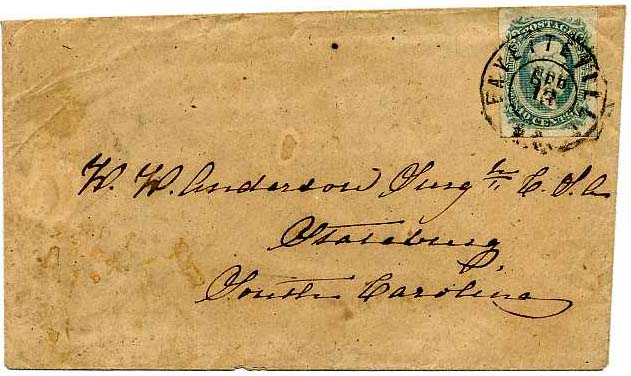 POSTAGE
FAYETTEVILLE
FEB
13
W. W. Anderson Surgn C. S. A
Stateburg
South Carolina